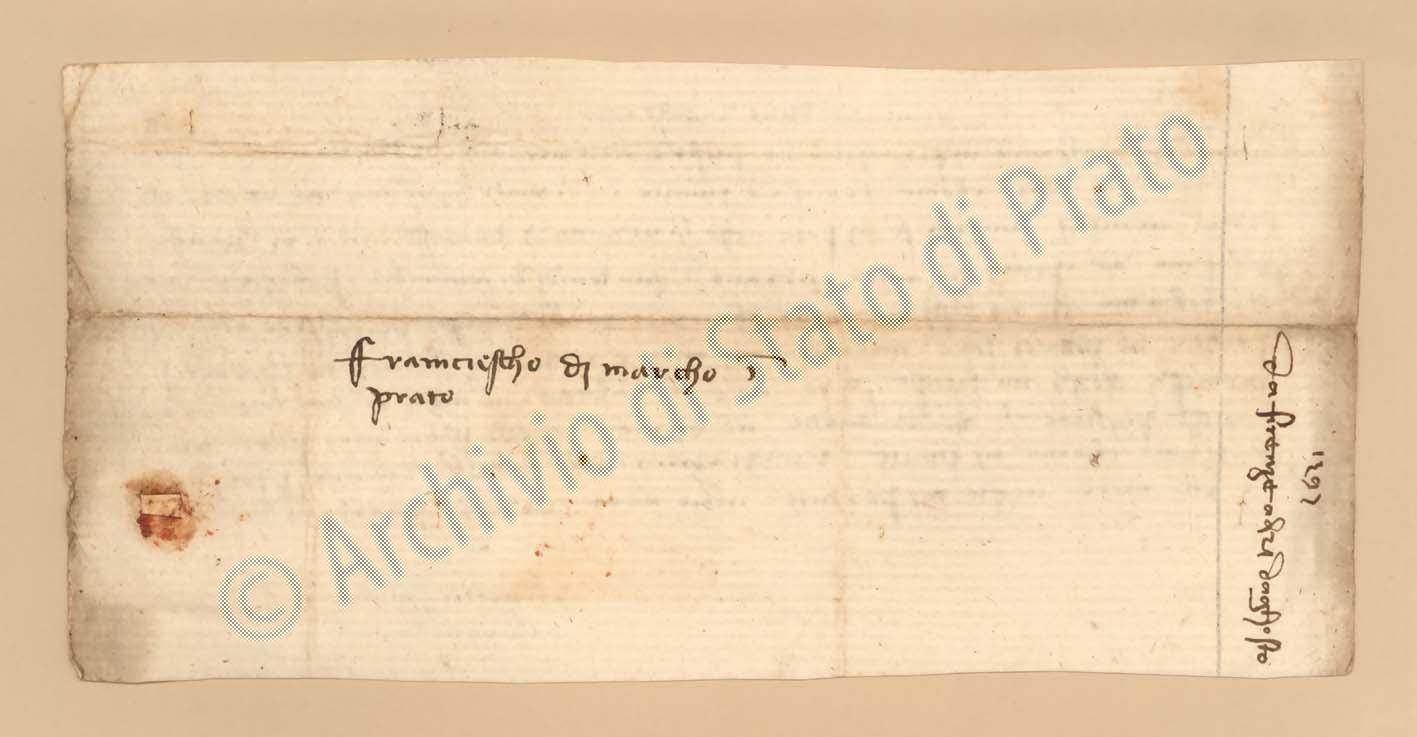 Franciescho di marcho in
prato
1392
da firenze a di d'aghosto
© Archivio di Stato di Prato